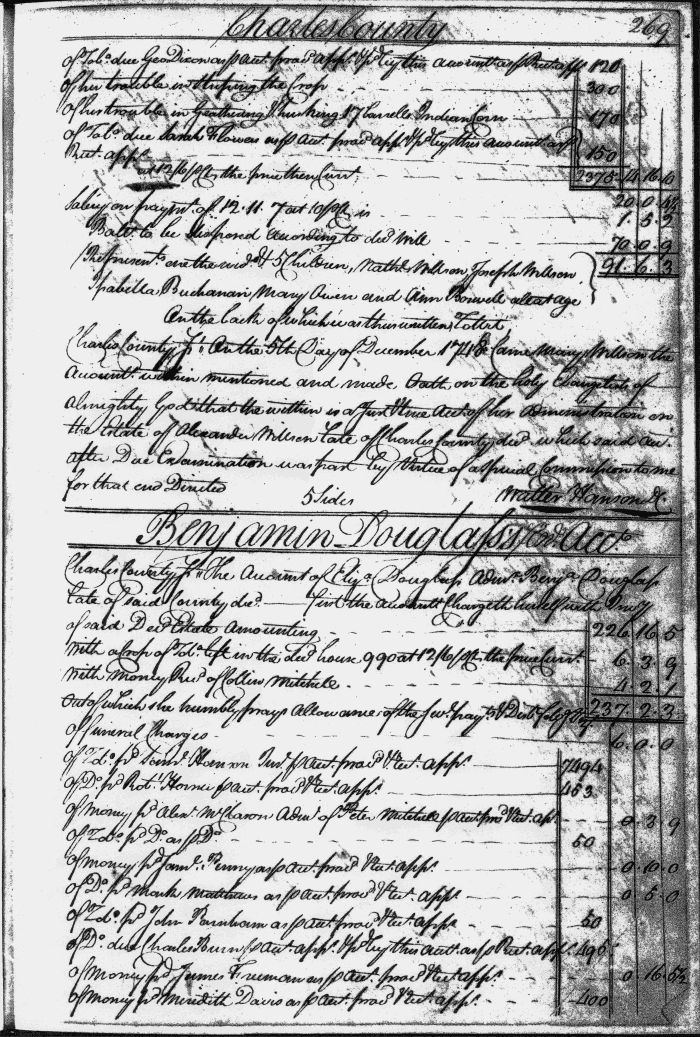 Charles County 269
of Tobo. due Geo Dixon as p Acct. provd appr. & pd by this Accountant as p Rect. appr. 120
of her trouble in Striping the Crop 300
of his trouble in Geathering & husking 17 barrells Indian Corn 170
of Tobo. due Sarah Flowers as p Acct. provd appr. & pd by this Accountant as p
Rect. appr. 150
at 12/6 p Ct. the price then Curt. 2375 14 16 10
Salery on paymt. of 12.11.7 at 10 p Ct. is 20 0 4½
1. 5. 2
Ball. to be disposed according to decd. Will 70. 0. 9
91. 6. 3
Represents. are the wid. & 5 Children, Nathl. Willson, Joseph Willson
Isabella Buchanan, Mary Owen and Ann Boswell all at age
On the back of which was thus written, Tottet,
Charles County Ss. On the 5th Day of December 1748 Came Mary Willson the
Accountt. within mentioned and made Oath on the holy Evangelists of
Almighty God that the within is a Just & true Acct. of her administration on
the Estate of Alexander Willson Late of Charles County decd. which said Acct.
after Due Examination was past by Virtue of a Special Commission to me
for that end Directed
5 Sides Walter Hanson DC
Benjamin Douglass's Adt. Acct.
Charles County Ss. The Account of Eliza. Douglass Admx. Benja. Douglass
Late of said County decd. First the Accountt. Chargeth herself with Invy
of said Decd. Estate Amounting 226 16 5
With a Crop of Tobo. left in the decd. house 990 at 12/6 p Ct. the price Curt. 6. 3. 9
With money Recd. of Collin Mitchell 4 2 1
237. 2. 3
Out of which she humbly prays Allowance of the
of Funeral Charges 6. 0. 0
of Tdo. pd. Saml. Hanson Junr. p Acct. provd & Rect. appr. 7494
of Do. pd Robt. Horner p Acct. provd & Rect. appr. 453
of Money pd Alexr. McClaron Admr. of Peter Mitchell p Acct. provd Rect. apr. 0. 3. 9
of Tdo. pd Do. as p Do. 50
of money pd Saml. Penny as p Acct. provd & Rect. appr. 0. 10. 0
of Do. pd Mark Matthews as p Acct. provd & Rect. appr. 0. 5. 0
of Tdo. pd John Barnham as p Acct. provd & Rect. appr. 50
of Do. due Charles Burn p Acct. appr. & pd by this Accttt. as p Rect. appr. 496
of Money pd James Freeman as p Acct. provd & Rect. appr. 0. 16. 5½
of Money pd Meridith Davis as p Acct. provd & Rect. appr. 400